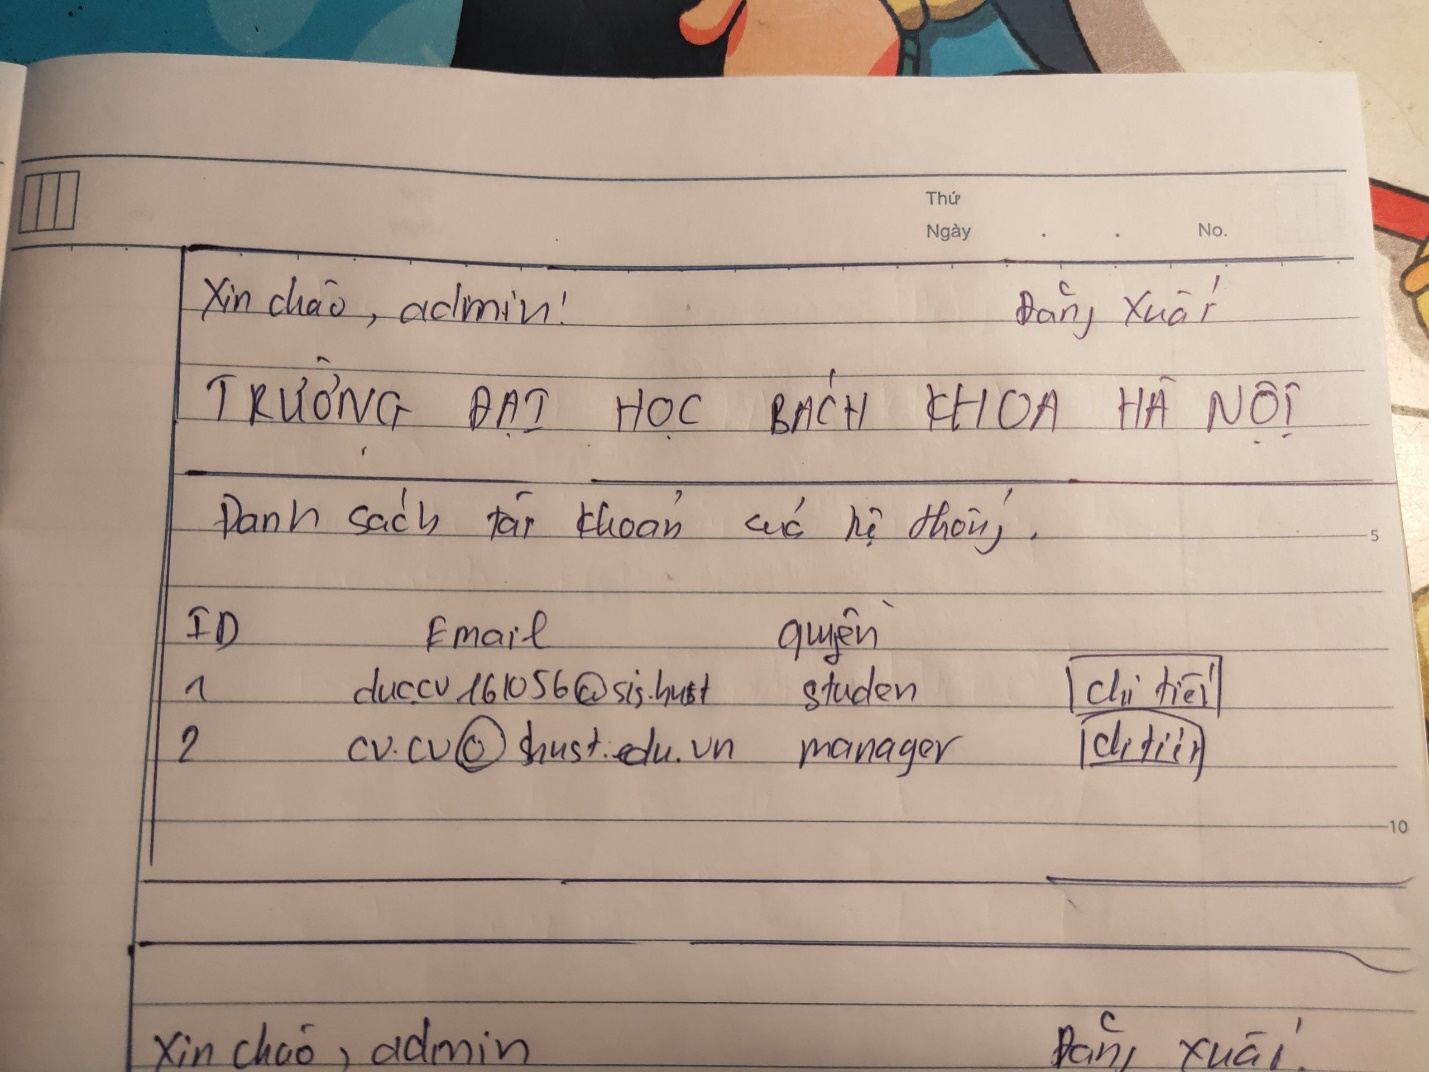 Thứ
Ngày . . No.
Xin chào, admin! Đăng xuất
TRƯỜNG ĐẠI HỌC BÁCH KHOA HÀ NỘI
Danh sách tài khoản các hệ thống.
5
ID Email quyền
1 duc.cv161056@sis.hust studen chi tiết
2 cv.cv@hust.edu.vn manager chi tiết
10
Xin chào, admin Đăng xuất.